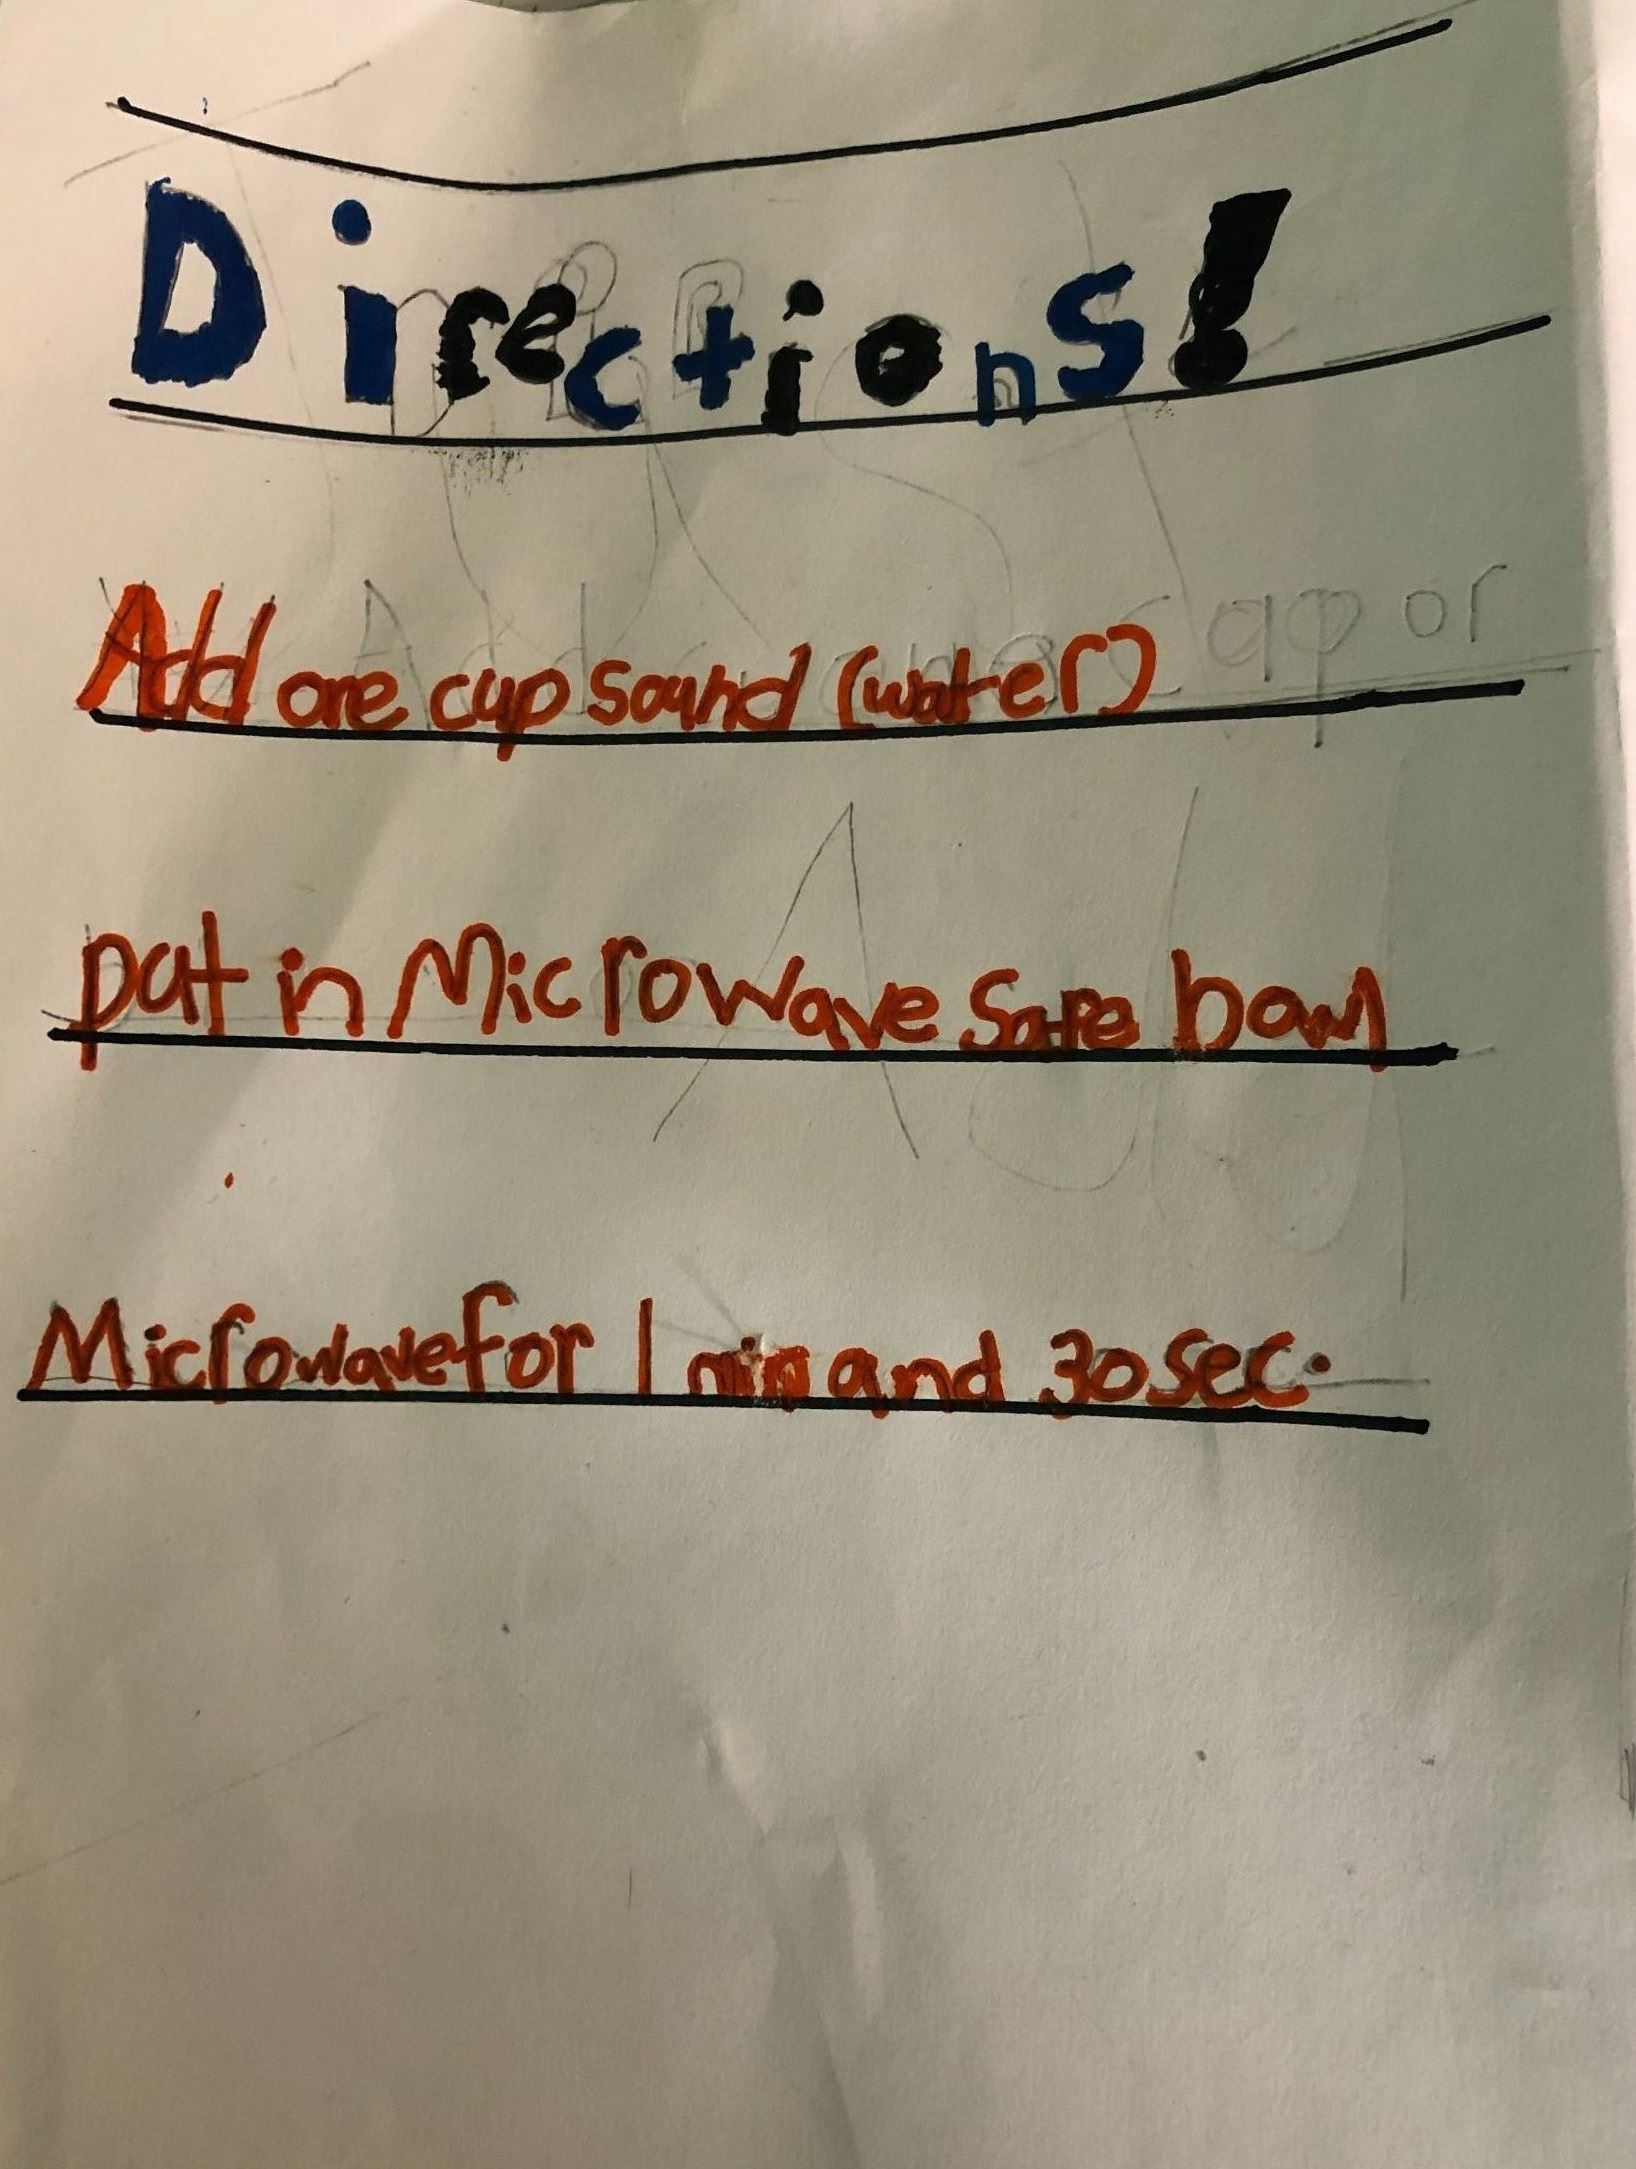 Directions!
Add one cup sound (water)
put in Microwave safe bowl
Microwave for 1 min and 30 sec.